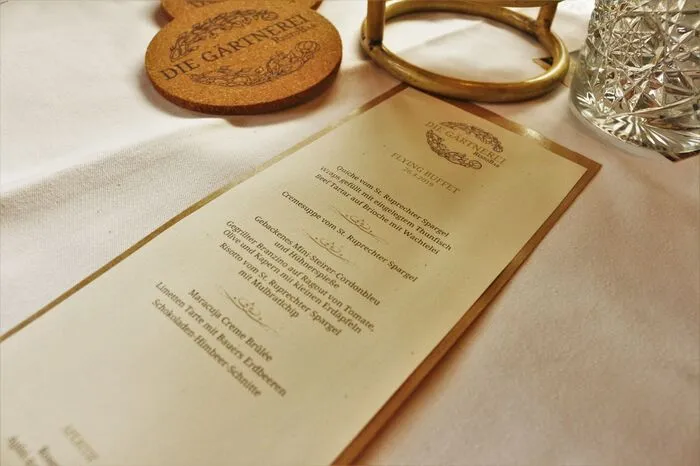 DIE GÄRTNEREI
DIE GÄRTNEREI
FLYING BUFFET
Quiche vom St. Ruprechter Spargel
Wraps gefüllt mit eingelegtem Thunfisch
Beef Tartar auf Brioche mit Wachtelei
Cremesuppe vom St. Ruprechter Spargel
Gebackenes Mini-Steirer Cordonbleu
und Hühnerspieße
Gegrillter Branzino auf Ragout von Tomate,
Olive und Kapern mit kleinen Erdäpfeln
Risotto vom St. Ruprechter Spargel
mit Mulbratlchip
Maracuja Creme Brûlée
Limetten Tarte mit Bauers Erdbeeren
Schokoladen-Himbeer-Schnitte